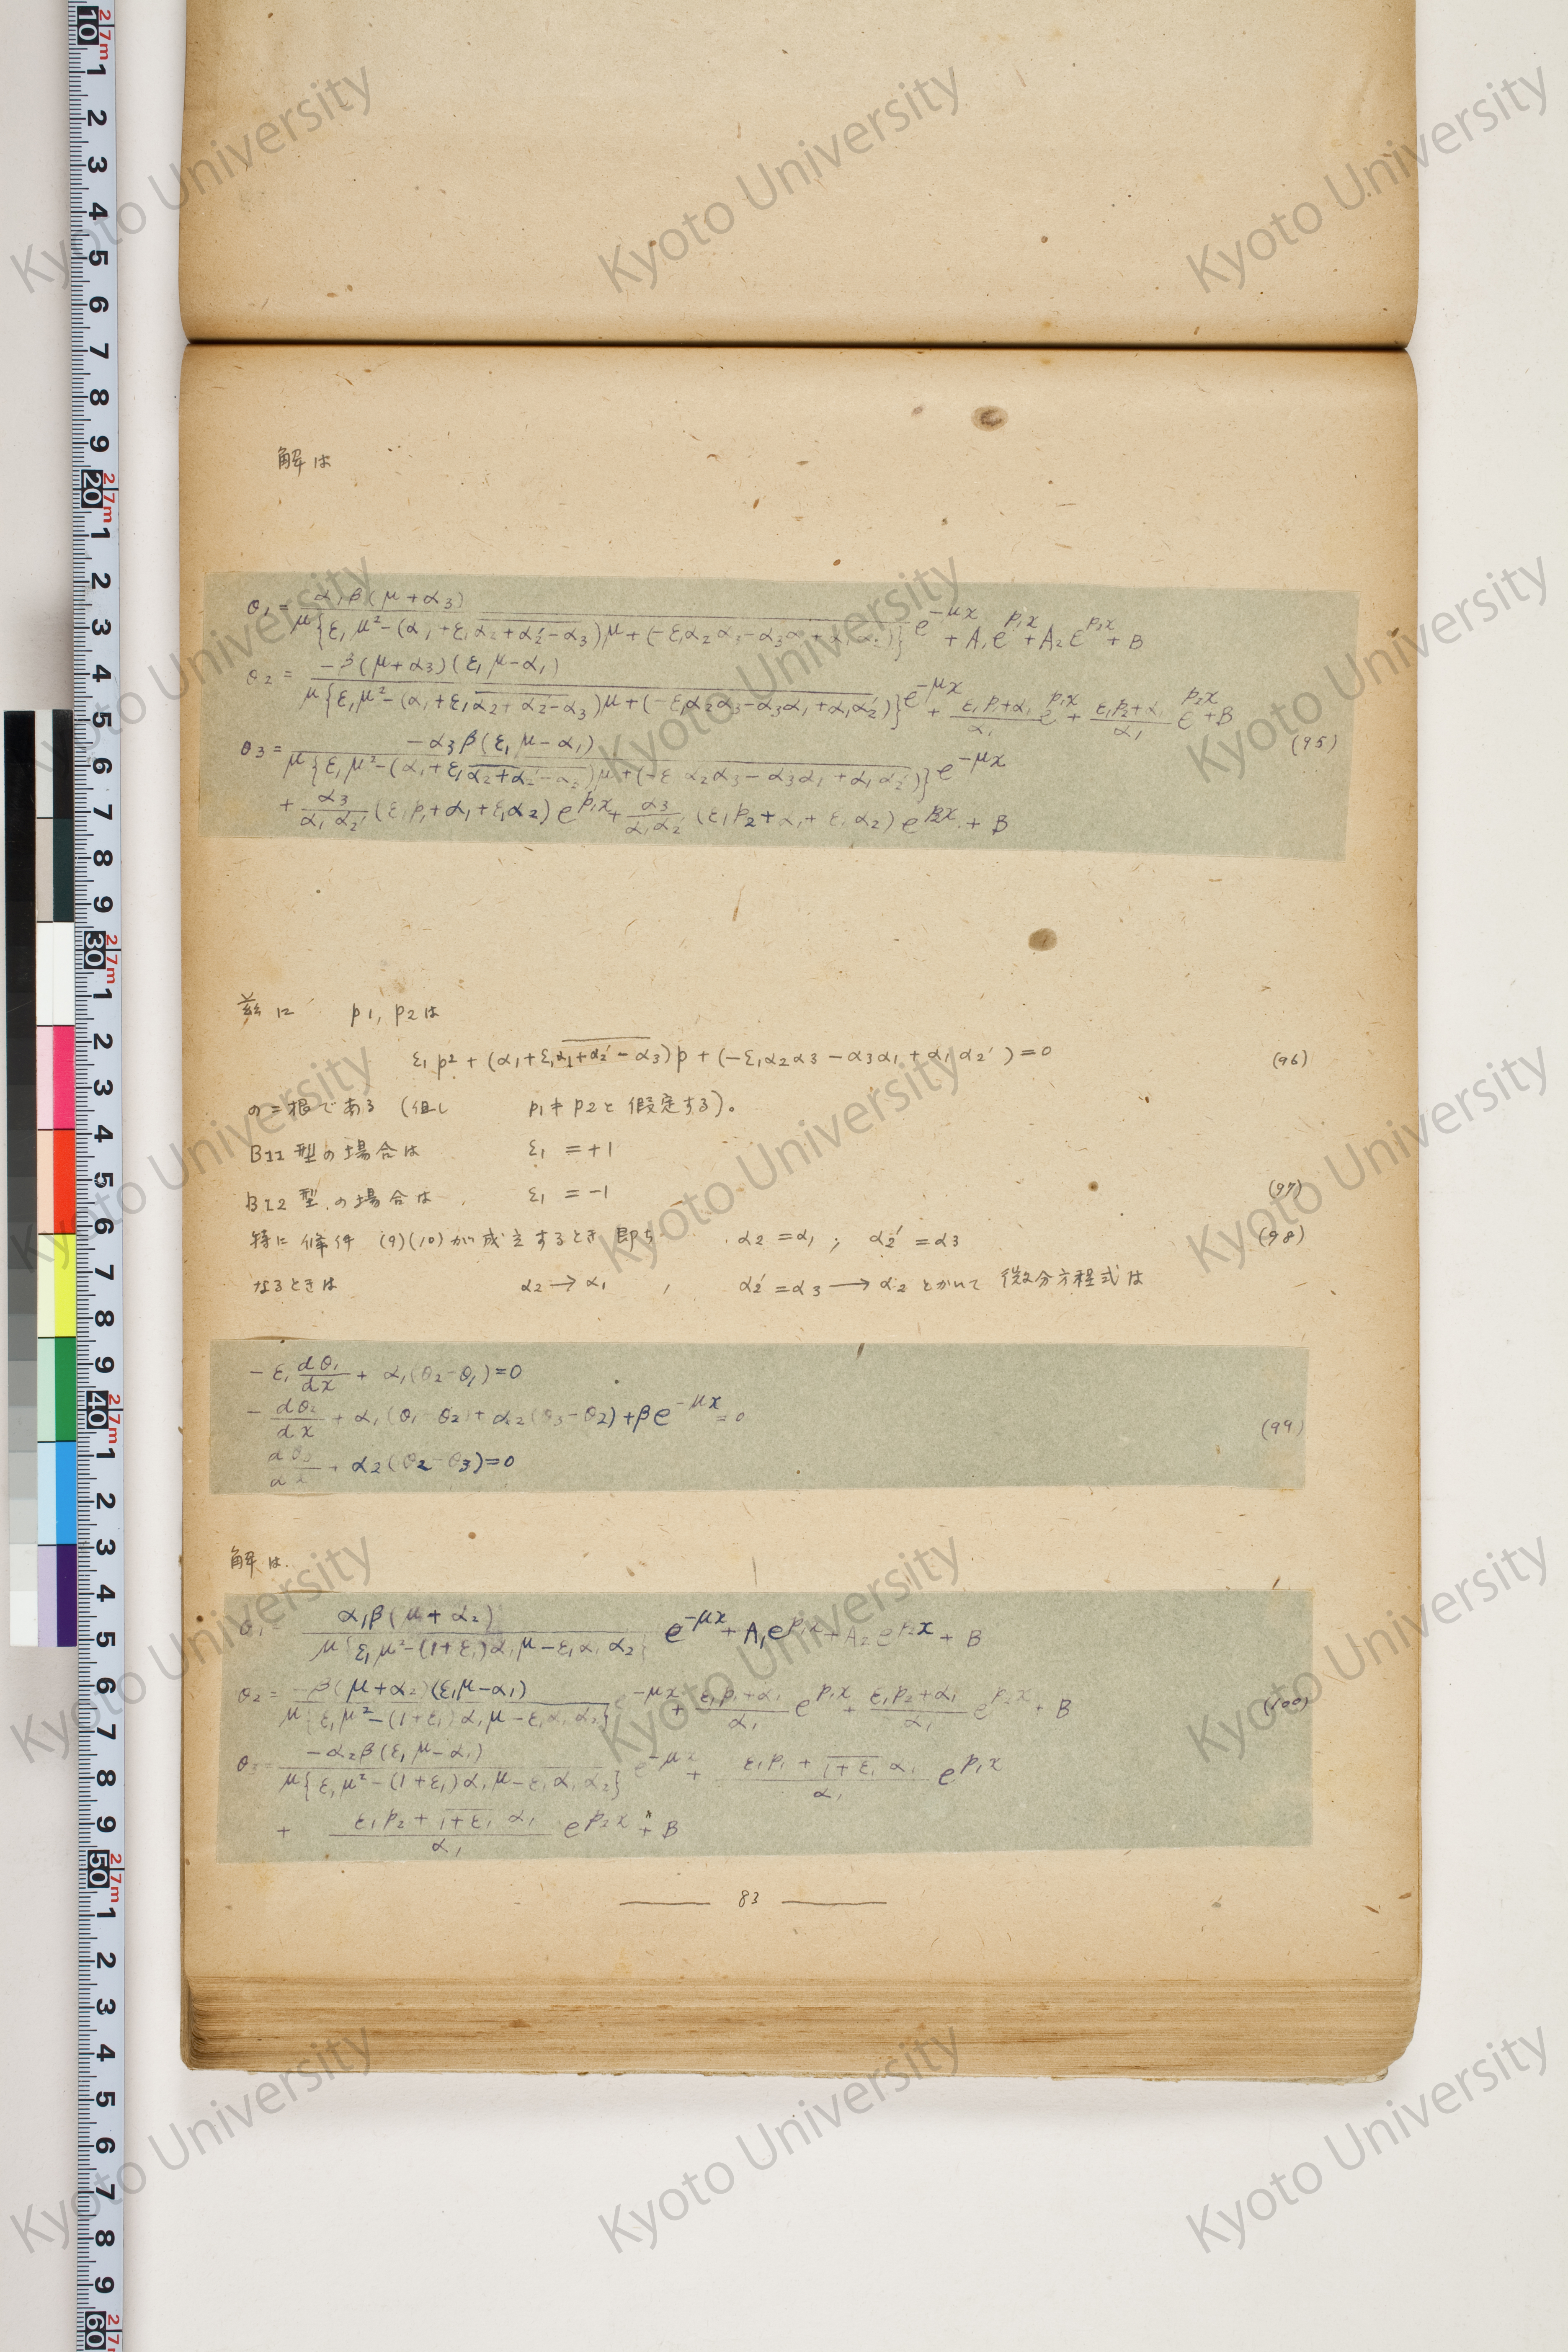 解は
θ1 = α1β(μ+α3) / μ{ε1μ²-(α1+ε1α2+α2′-α3)μ+(-ε1α2α3-α3α1+α1α2′)} e^-μx + A1e^p1x + A2e^p2x + B
θ2 = -β(μ+α3)(ε1μ-α1) / μ{ε1μ²-(α1+ε1α2+α2′-α3)μ+(-ε1α2α3-α3α1+α1α2′)} e^-μx + ε1p1+α1 / α1 e^p1x + ε1p2+α1 / α1 e^p2x + B
θ3 = -α3β(ε1μ-α1) / μ{ε1μ²-(α1+ε1α2+α2′-α3)μ+(-ε1α2α3-α3α1+α1α2′)} e^-μx (95)
+ α3 / α1α2′ (ε1p1+α1+ε1α2) e^p1x + α3 / α1α2′ (ε1p2+α1+ε1α2) e^p2x + B
茲に p1, p2は
ε1p² + (α1+ε1α1+α2′-α3)p + (-ε1α2α3-α3α1+α1α2′) = 0 (96)
の二根である (但し p1≠p2と假定する)。
BI1型の場合は ε1 = +1
BI2型の場合は ε1 = -1 (97)
特に條件 (9)(10)が成立するとき 即ち α2 = α1 ; α2′ = α3 (98)
なるときは α2 → α1 , α2′ = α3 → α2 とかいて 微分方程式は
-ε1 dθ1/dx + α1(θ2-θ1)=0
-dθ2/dx + α1(θ1-θ2)+α2(θ3-θ2)+βe^-μx=0 (99)
dθ3/dx + α2(θ2-θ3)=0
解は
θ1= α1β(μ+α2) / μ{ε1μ²-(1+ε1)α1μ-ε1α1α2} e^-μx + A1e^p1x + A2e^p2x + B
θ2= -β(μ+α2)(ε1μ-α1) / μ{ε1μ²-(1+ε1)α1μ-ε1α1α2} e^-μx + ε1p1+α1 / α1 e^p1x + ε1p2+α1 / α1 e^p2x + B (100)
θ3= -α2β(ε1μ-α1) / μ{ε1μ²-(1+ε1)α1μ-ε1α1α2} e^-μx + ε1p1+1+ε1 α1 / α1 e^p1x
+ ε1p2+1+ε1 α1 / α1 e^p2x + B
83